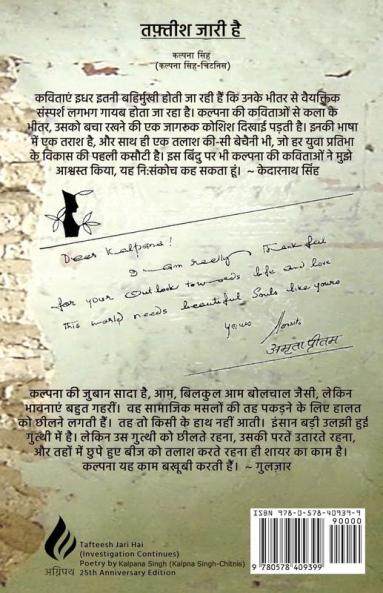 तफ़्तीश जारी है
कल्पना सिंह
(कल्पना सिंह-चिटनिस)
कविताएं इधर इतनी बहिर्मुखी होती जा रही हैं कि उनके भीतर से वैयक्तिक
संस्पर्श लगभग गायब होता जा रहा है। कल्पना की कविताओं से कला के
भीतर, उसको बचा रखने की एक जागरूक कोशिश दिखाई पड़ती है। इनकी भाषा
में एक तराश है, और साथ ही एक तलाश की-सी बेचैनी भी, जो हर युवा प्रतिभा
के विकास की पहली कसौटी है। इस बिंदु पर भी कल्पना की कविताओं ने मुझे
आश्वस्त किया, यह नि:संकोच कह सकता हूं। ~ केदारनाथ सिंह
Dear Kalpana!
I am really thankful
for your outlook towards life and love
This world needs beautiful Souls like yours
yours
अमृता प्रीतम
कल्पना की जुबान सादा है, आम, बिलकुल आम बोलचाल जैसी, लेकिन
भावनाएं बहुत गहरीं। वह सामाजिक मसलों की तह पकड़ने के लिए हालत
को छीलने लगतीं हैं। तह तो किसी के हाथ नहीं आती। इंसान बड़ी उलझी हुई
गुत्थी में है। लेकिन उस गुत्थी को छीलते रहना, उसकी परतें उतारते रहना,
और तहों में छुपे हुए बीज को तलाश करते रहना ही शायर का काम है।
कल्पना यह काम बखूबी करती हैं। ~ गुलज़ार
अग्निपथ
Tafteesh Jari Hai
(Investigation Continues)
Poetry by Kalpana Singh (Kalpna Singh-Chitnis)
25th Anniversary Edition
ISBN 978-0-578-40939-9
90000
9 780578 409399